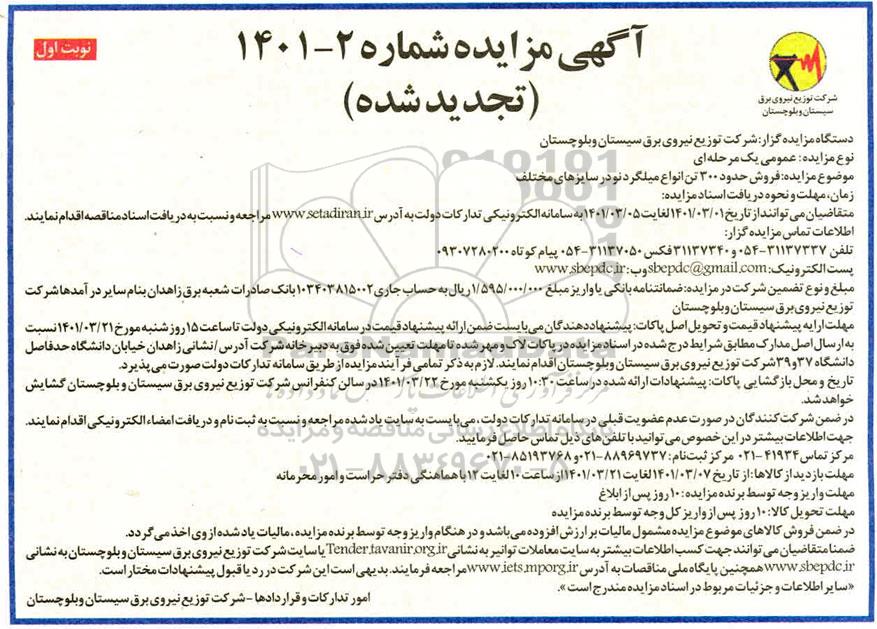 نوبت اول
آگهی مزایده شماره ۲-۱۴۰۱
(تجدید شده)
شرکت توزیع نیروی برق
سیستان و بلوچستان
دستگاه مزایده گزار: شرکت توزیع نیروی برق سیستان و بلوچستان
نوع مزایده: عمومی یک مرحله ای
موضوع مزایده: فروش حدود ۳۰۰ تن انواع میلگرد نو در سایزهای مختلف
زمان، مهلت و نحوه دریافت اسناد مزایده:
متقاضیان می توانند از تاریخ ۱۴۰۱/۰۳/۰۱ لغایت ۱۴۰۱/۰۳/۰۵ به سامانه الکترونیکی تدارکات دولت به آدرس www.setadiran.ir مراجعه و نسبت به دریافت اسناد مناقصه اقدام نمایند.
اطلاعات تماس مزایده گزار:
تلفن ۳۱۱۳۷۳۳۷-۰۵۴ و ۳۱۱۳۷۳۴۰ فکس ۳۱۱۳۷۰۵۰-۰۵۴ پیام کوتاه ۰۹۳۰۷۲۸۰۲۰۰
پست الکترونیک: sbepdc@gmail.com وب: www.sbepdc.ir
مبلغ و نوع تضمین شرکت در مزایده: ضمانتنامه بانکی یا واریز مبلغ ۱/۵۹۵/۰۰۰/۰۰۰ ریال به حساب جاری ۱۰۳۴۰۳۸۱۵۰۰۲ بانک صادرات شعبه برق زاهدان بنام سایر در آمدها شرکت
توزیع نیروی برق سیستان و بلوچستان
مهلت ارایه پیشنهاد قیمت و تحویل اصل پاکات: پیشنهاد دهندگان می بایست ضمن ارائه پیشنهاد قیمت در سامانه الکترونیکی دولت تا ساعت ۱۵ روز شنبه مورخ ۱۴۰۱/۰۳/۲۱ نسبت
به ارسال اصل مدارک مطابق شرایط درج شده در اسناد مزایده در پاکات لاک و مهر شده تا مهلت تعیین شده فوق به دبیرخانه شرکت آدرس/ نشانی زاهدان خیابان دانشگاه حدفاصل
دانشگاه ۳۷ و ۳۹ شرکت توزیع نیروی برق سیستان و بلوچستان اقدام نمایند. لازم به ذکر تمامی فرآیند مزایده از طریق سامانه تدارکات دولت صورت می پذیرد.
تاریخ و محل بازگشایی پاکات: پیشنهادات ارائه شده در ساعت ۱۰:۳۰ روز یکشنبه مورخ ۱۴۰۱/۰۳/۲۲ در سالن کنفرانس شرکت توزیع نیروی برق سیستان و بلوچستان گشایش
خواهد شد.
در ضمن شرکت کنندگان در صورت عدم عضویت قبلی در سامانه تدارکات دولت، می بایست به سایت یاد شده مراجعه و نسبت به ثبت نام و دریافت امضاء الکترونیکی اقدام نمایند.
جهت اطلاعات بیشتر در این خصوص می توانید با تلفن های ذیل تماس حاصل فرمایید.
مرکز تماس ۴۱۹۳۴-۰۲۱ مرکز ثبت نام: ۸۸۹۶۹۷۳۷-۰۲۱ و ۸۵۱۹۳۷۶۸-۰۲۱
مهلت بازدید از کالاها: از تاریخ ۱۴۰۱/۰۳/۰۷ لغایت ۱۴۰۱/۰۳/۲۱ از ساعت ۱۰ لغایت ۱۲ با هماهنگی دفتر حراست و امور محرمانه
مهلت واریز وجه توسط برنده مزایده: ۱۰ روز پس از ابلاغ
مهلت تحویل کالا: ۱۰ روز پس از واریز کل وجه توسط برنده مزایده
در ضمن فروش کالاهای موضوع مزایده مشمول مالیات بر ارزش افزوده می باشد و در هنگام واریز وجه توسط برنده مزایده، مالیات یاد شده از وی اخذ می گردد.
ضمنا متقاضیان می توانند جهت کسب اطلاعات بیشتر به سایت معاملات توانیر به نشانی Tender.tavanir.org.ir یا سایت شرکت توزیع نیروی برق سیستان و بلوچستان به نشانی
www.sbepdc.ir همچنین پایگاه ملی مناقصات به آدرس www.iets.mporg.ir مراجعه فرمایند. بدیهی است این شرکت در رد یا قبول پیشنهادات مختار است.
«سایر اطلاعات و جزئیات مربوط در اسناد مزایده مندرج است».
امور تدارکات و قراردادها - شرکت توزیع نیروی برق سیستان و بلوچستان
پایگاه اطلاع رسانی مناقصه و مزایده
۰۲۱-۸۸۳۴۹۶۷۰-۵